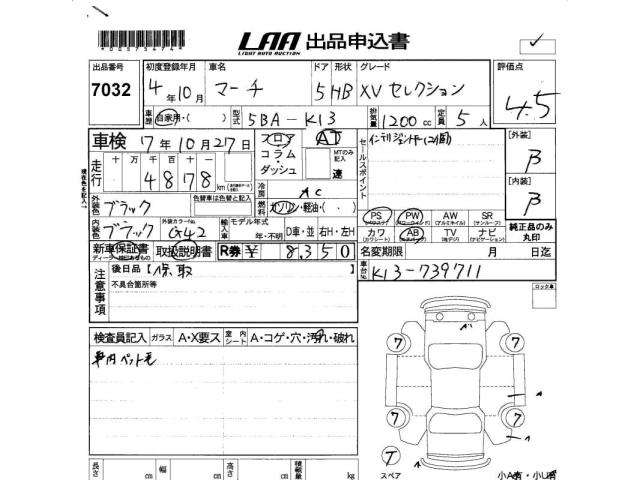 LAA 出品申込書
LIGHT AUTO AUCTION
出品番号 7032
初度登録年月 4年10月
車名 マーチ
ドア 形状 5 HB
グレード XV セレクション
評価点 4.5
車歴 自家用・( )
型式 5BA-K13
排気量 1200 cc
定員 5人
車検 17年10月27日
フロア コラム・ダッシュ AT
MTのみ記入 速
セールスポイント インテリジェントキー(2個)
[外装] β
[内装] β
走行 十 万 千 百 十 一
4878 km
現在色を記入↑
冷房 AC
燃料 ガソリン・軽油・( )
外装色 ブラック
色替車は色替と記入
内装色 ブラック
外装カラーNo. G42
輸入車 モデル年式 年・不明
D車・並 右H・左H
PS パワステ
PW パワーウインド
AW (アルミホイル)
SR (サンルーフ)
カワ (カワシート)
AB エアバッグ
TV (地デジ)
ナビ (ナビゲーション)
純正品のみ丸印
新車保証書
取扱説明書
R券 ¥ 8,350
名変期限 月 日迄
車台No. K13-739711
注意事項
後日品[保取
不具合箇所等
ロック車
検査員記入 ガラス A・X要ス
室内シート A・コゲ・穴・汚れ・破れ
車内ペット毛
7 7
7 7
T
スペア
長さ cm 幅 cm 高さ cm 積載量 kg
小A有・小U有